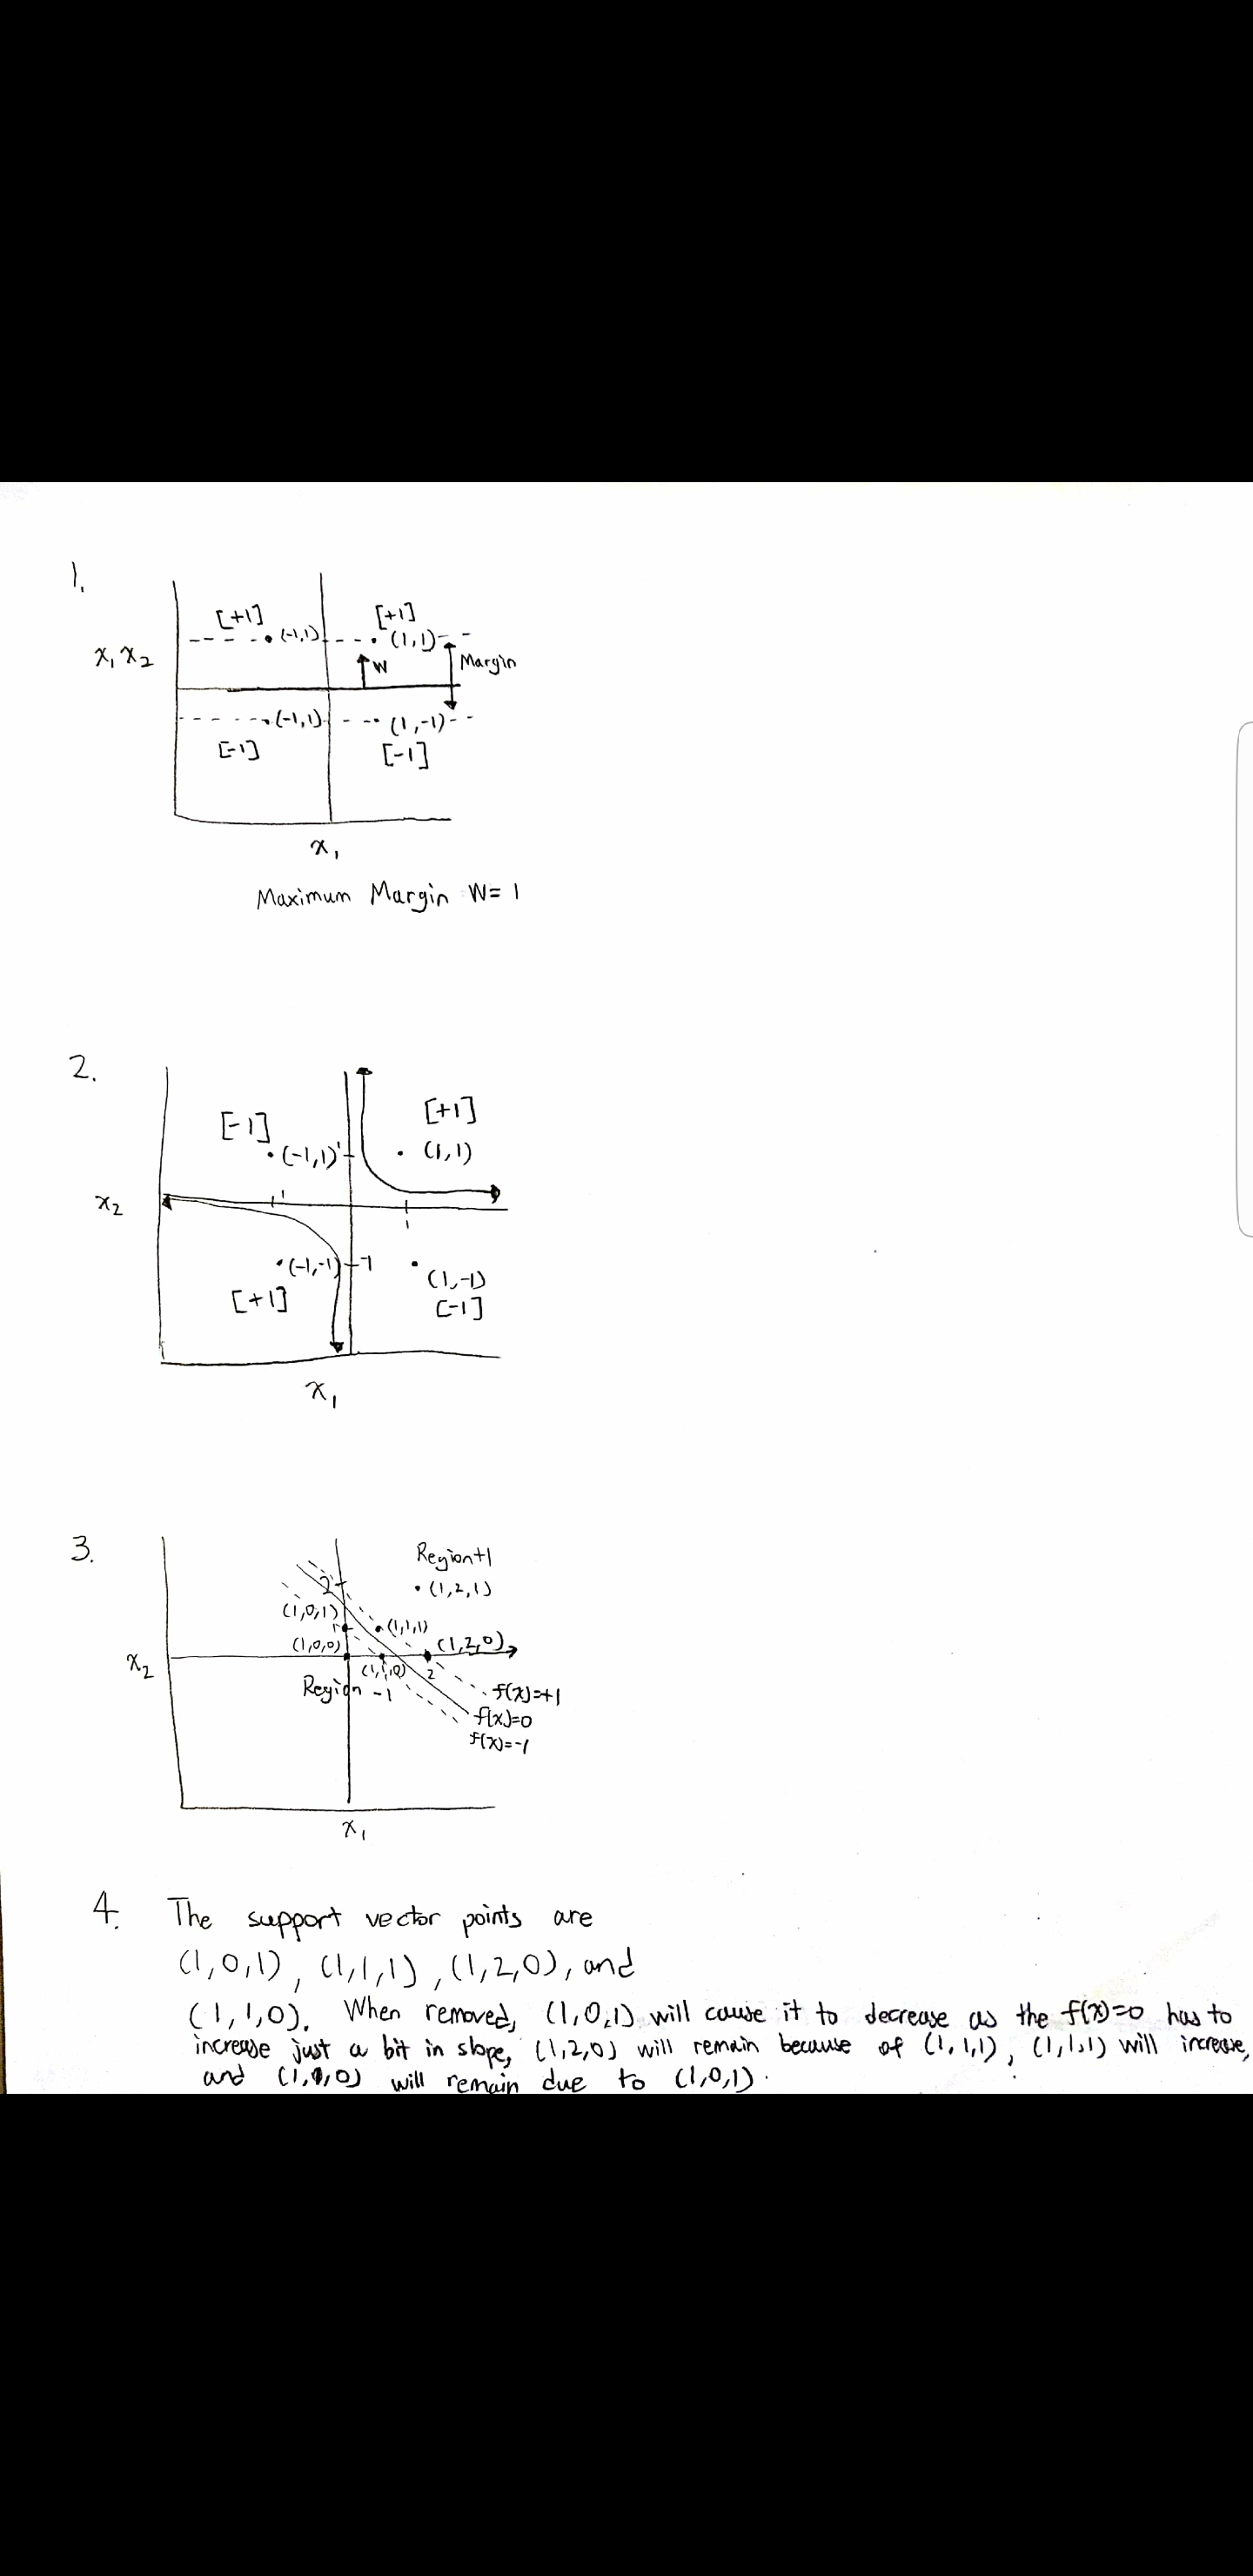 1.
[+1] [+1]
(-1,1) (1,1)
x₁x₂ W Margin
(-1,1) (1,-1)
[-1] [-1]
x₁
Maximum Margin W= 1
2.
[-1] [+1]
(-1,1) 1 (1,1)
x₂ 1
1
(-1,-1) -1 (1,-1)
[+1] [-1]
x₁
3.
Region+1
2 (1,2,1)
(1,0,1) 1 (1,1,1)
(1,0,0) (1,2,0)
x₂ (1,1,0) 2
Region -1 f(x)=+1
f(x)=0
f(x)=-1
x₁
4. The support vector points are
(1,0,1), (1,1,1), (1,2,0), and
(1,1,0). When removed, (1,0,1) will cause it to decrease as the f(x)=0 has to
increase just a bit in slope, (1,2,0) will remain because of (1,1,1), (1,1,1) will increase,
and (1,1,0) will remain due to (1,0,1).